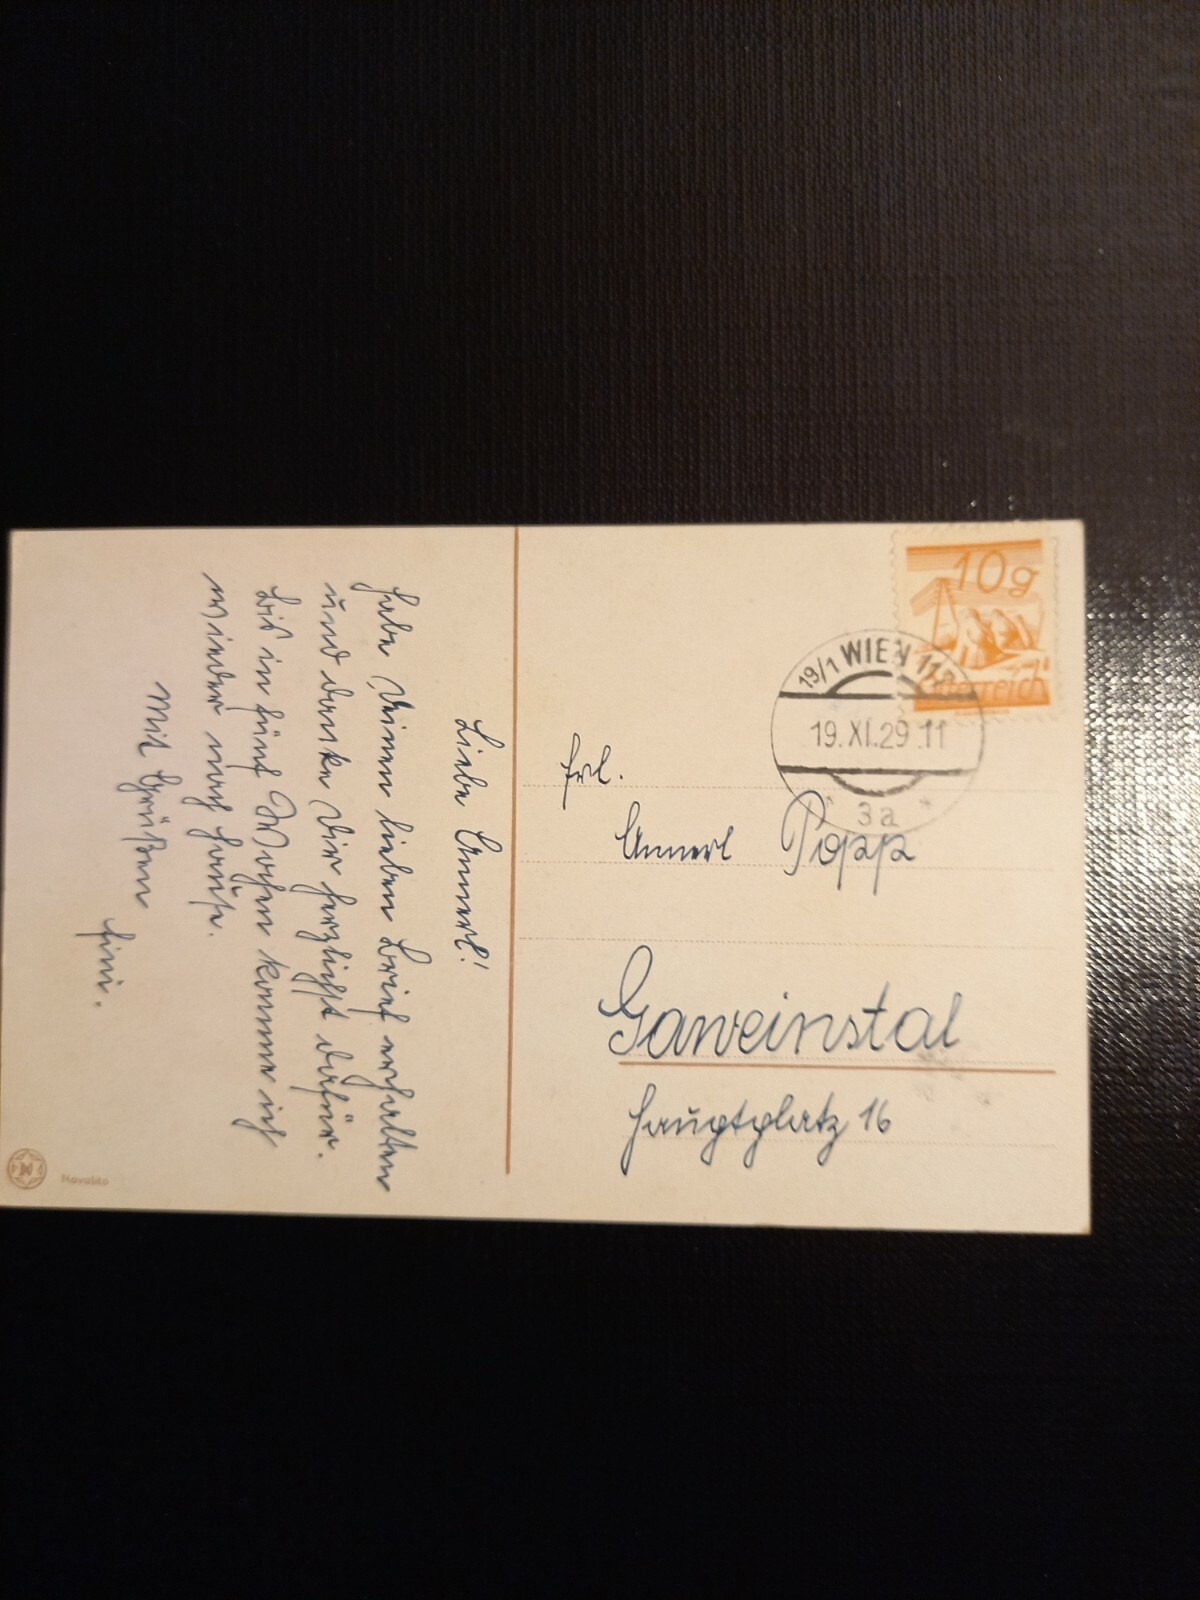 Liebe Annerl!
Habe Deinen lieben Brief erhalten
und danke Dir herzlichst dafür.
Bis in fünf Wochen komme ich
wieder nach Hause.
Mit Grüßen
Fini.
Novalda
10g
Österreich
19/1 WIEN 118
19.XI.29 11
* 3a *
Frl.
Annerl Popp
Gaweinstal
Hauptplatz 16